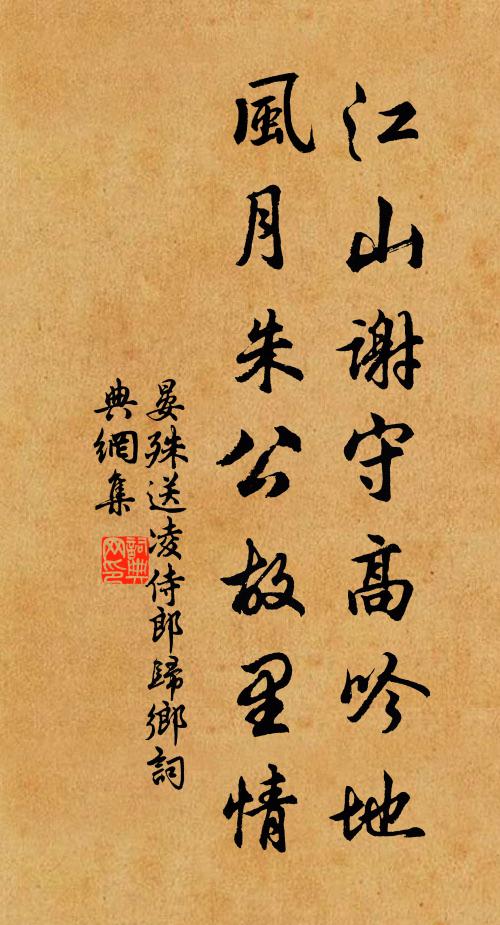 江山謝守高吟地
風月朱公故里情
晏殊送凌侍郎歸鄉詞
典網集
詞典網印